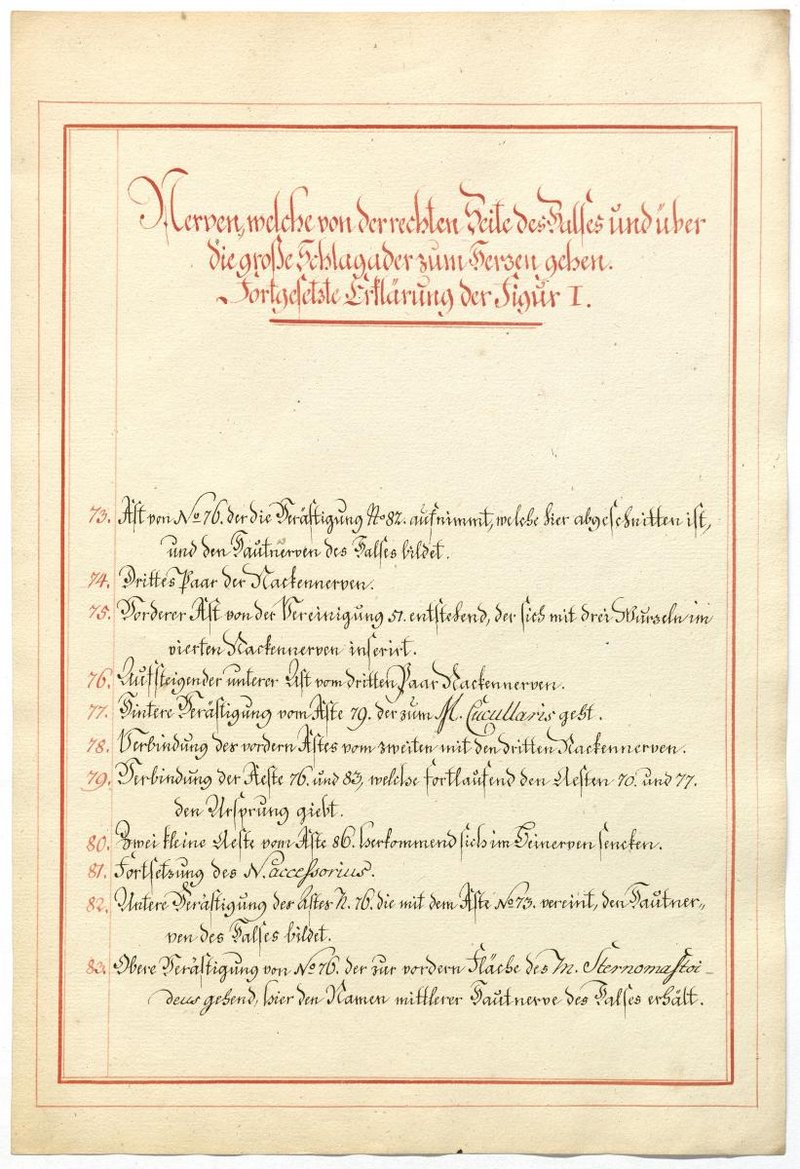 Nerven, welche von der rechten Seite des Halses und über
die große Schlagader zum Herzen gehen.
Fortgesetzte Erklärung der Figur I.
73. Ast von No 76. der die Verästigung No 82. aufnimmt, welche hier abgeschnitten ist,
und den Hautnerven des Halses bildet.
74. Drittes Paar der Nackennerven.
75. Vorderer Ast von der Vereinigung 51. entstehend, der sich mit drei Wurzeln im
vierten Nackennerven inserirt.
76. Aufsteigender unterer Ast vom dritten Paar Nackennerven.
77. Hintere Verästigung vom Aste 79. der zum M. Cucullaris geht.
78. Verbindung des vordern Astes vom zweiten mit den dritten Nackennerven.
79. Verbindung der Aeste 76. und 83, welche fortlaufend den Aesten 70. und 77.
den Ursprung giebt.
80. Zwei kleine Aeste vom Aste 86. herkommend sich im Beinerven sencken.
81. Fortsetzung des N. accessorius.
82. Untere Verästigung des Astes N. 76. die mit dem Aste No 73. vereint, den Hautner„
ven des Halses bildet.
83. Obere Verästigung von No 76. der zur vordern Fläche des M. Sternomastoi-
deus gehend, hier den Namen mittlerer Hautnerve des Halses erhält.